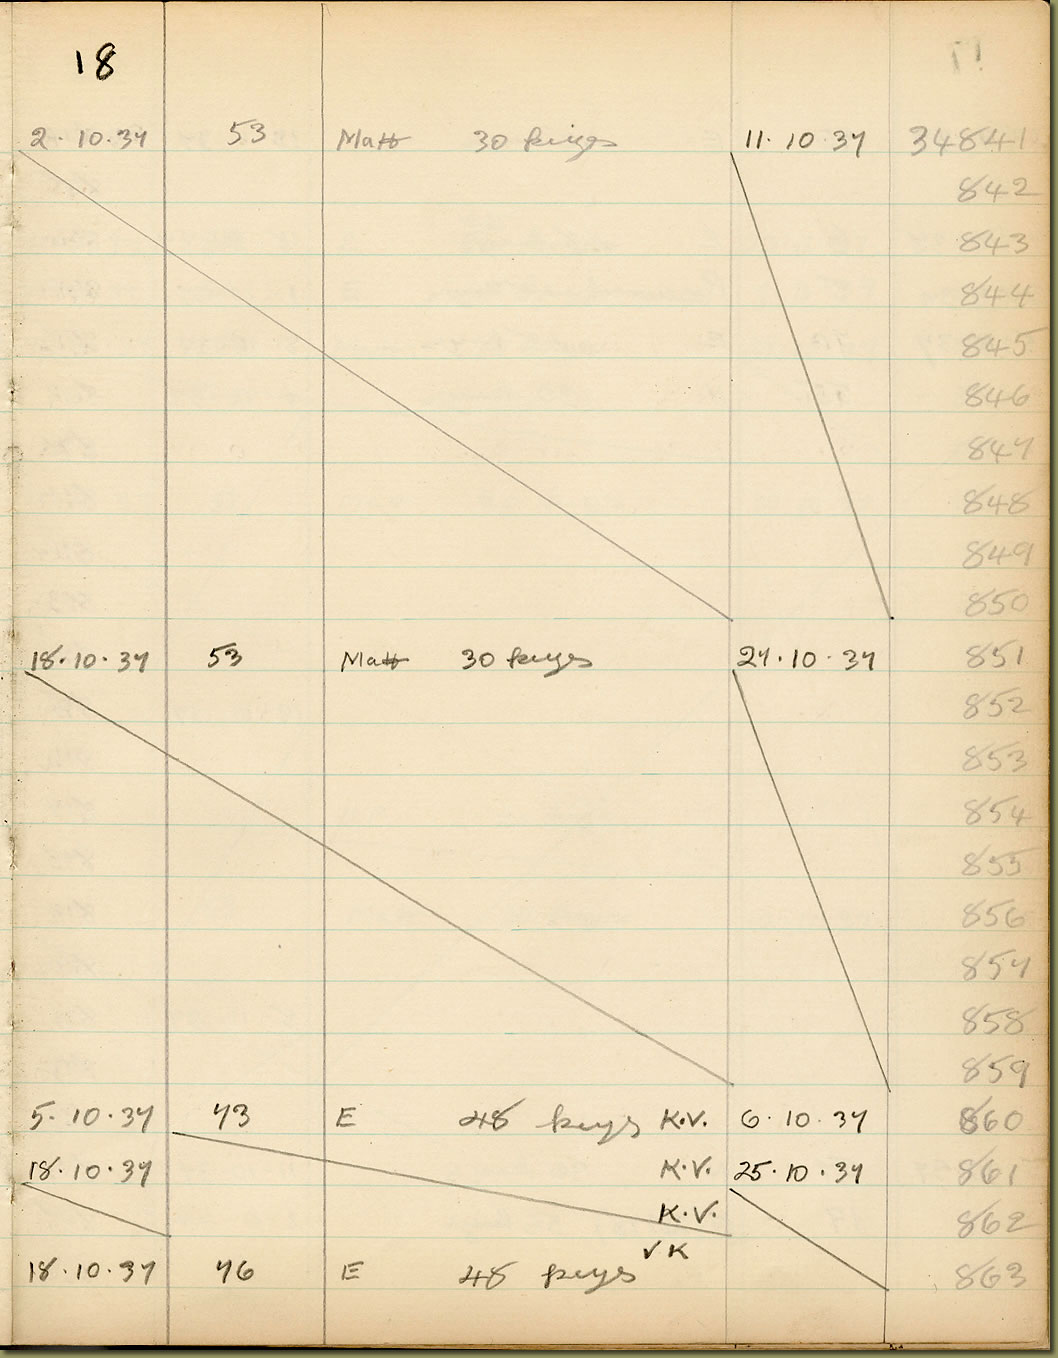 18
2. 10. 37 53 Matt 30 keyes 11. 10 37 34841
842
843
844
845
846
847
848
849
850
18. 10. 37 53 Matt 30 keyes 27. 10. 37 851
852
853
854
855
856
857
858
859
5. 10. 37 73 E 48 keys K.V. 6. 10. 37 860
18. 10. 37 K.V. 25. 10. 37 861
K.V. 862
V K
18. 10. 37 76 E 48 keys 863